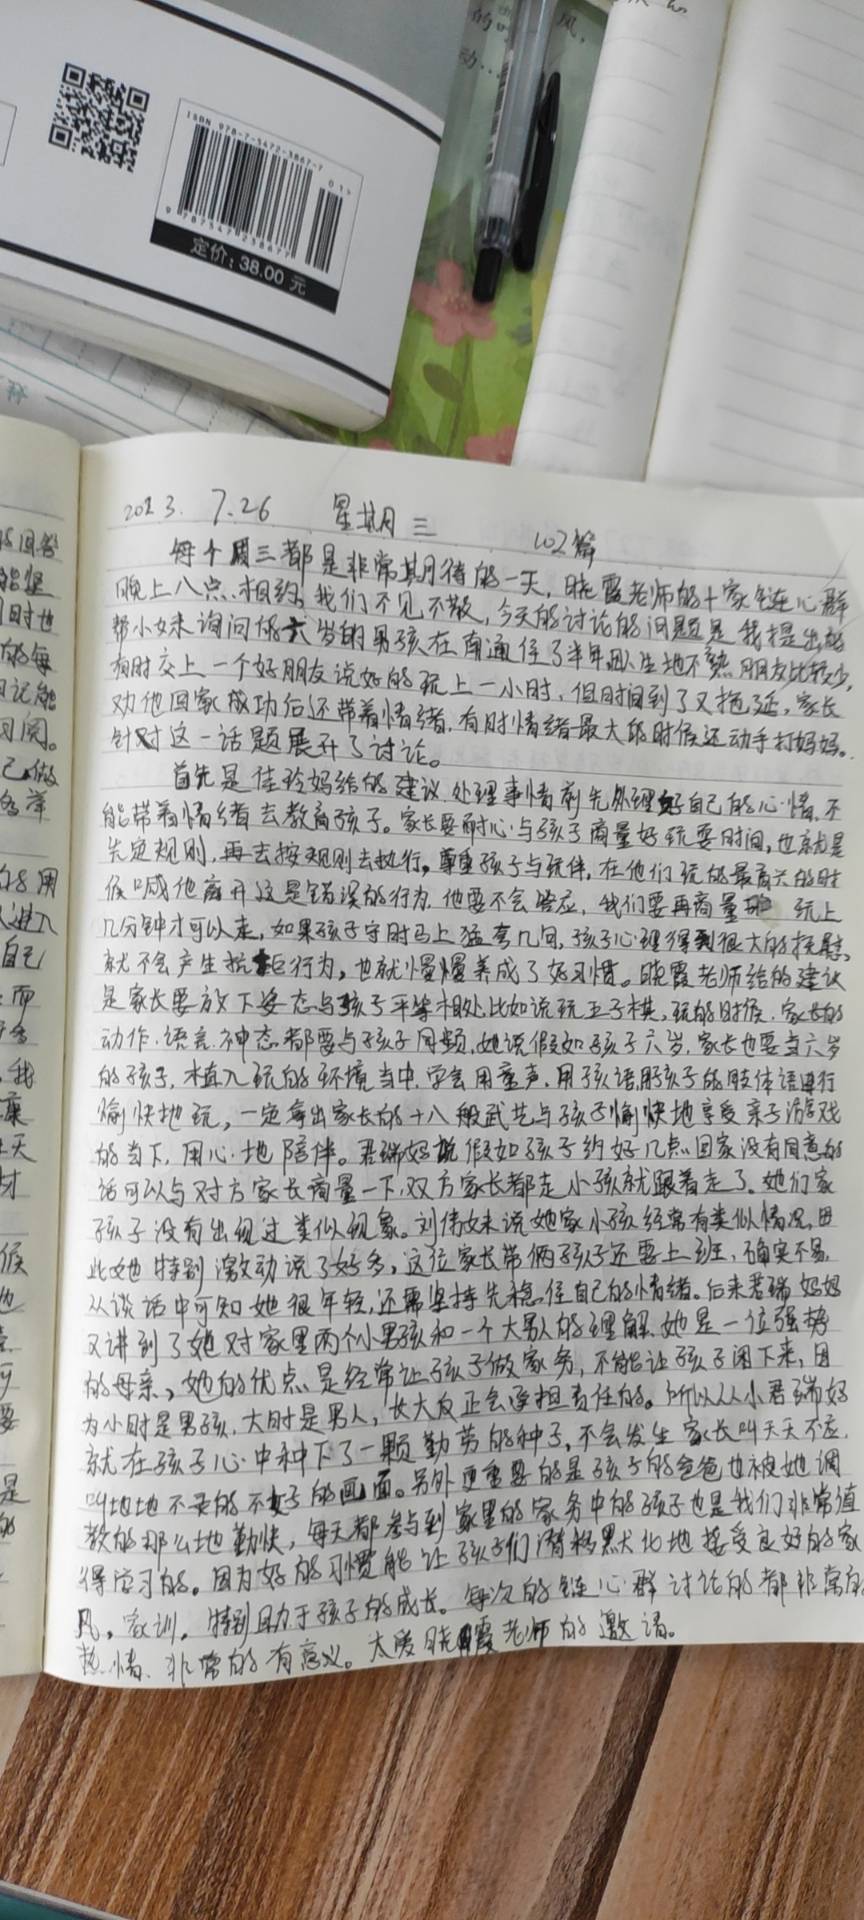 的 风,
动…
ISBN 978-7-5472-3867-7
01>
9 787547 238677
定价: 38.00 元
2023. 7.26 星期三 102篇
每个周三都是非常期待的一天, 晓霞老师的十家链心群
晚上八点, 相约, 我们不见不散, 今天的讨论的问题是我提出的
帮小妹询问的六岁的男孩在南通住了半年, 人生地不熟朋友比较少,
有时交上一个好朋友说好的玩上一小时, 但时间到了又拖延, 家长
劝他回家成功后还带着情绪, 有时情绪最大的时候还动手打妈妈。
针对这一话题展开了讨论。
首先是佳玲妈给的建议, 处理事情前先处理好自己的心情, 不
能带着情绪去教育孩子。家长要耐心与孩子商量好玩耍时间, 也就是
先定规则, 再去按规则去执行, 尊重孩子与玩伴, 在他们玩的最高兴的时
候喊他离开这是错误的行为, 他要不会答应, 我们要再商量 玩上
几分钟才可以走, 如果孩子守时马上猛夸几句, 孩子心理得到很大的抚慰,
就不会产生抗拒行为, 也就慢慢养成了好习惯。晓霞老师给的建议
是家长要放下姿态与孩子平等相处, 比如说玩五子棋, 玩的时候, 家长的
动作, 语言, 神态都要与孩子同频, 她说假如孩子六岁, 家长也要当六岁
的孩子, 植入玩的环境当中, 学会用童声, 用孩语, 用孩子的肢体语进行
愉快地玩, 一定拿出家长的十八般武艺与孩子愉快地享受亲子游戏
的当下, 用心地陪伴。君瑞妈说假如孩子约好几点回家没有同意的
话可以与对方家长商量一下, 双方家长都走小孩就跟着走了。她们家
孩子没有出现过类似现象。刘伟妹说她家小孩经常有类似情况, 因
此她特别激动说了好多, 这位家长带俩孩子还要上班, 确实不易,
从谈话中可知她很年轻, 还需坚持先稳住自己的情绪。后来君瑞妈妈
又讲到了她对家里两个小男孩和一个大男人的理解, 她是一位强势
的母亲, 她的优点是经常让孩子做家务, 不能让孩子闲下来, 因
为小时是男孩, 大时是男人, 长大反正会承担责任的。所以从小君瑞妈
就在孩子心中种下了一颗勤劳的种子, 不会发生家长叫天天不应,
叫地地不灵的不好的画面。另外更重要的是孩子的爸爸也被她调
教的那么地勤快, 每天都参与到家里的家务中的孩子也是我们非常值
得学习的。因为好的习惯能让孩子们潜移默化地接受良好的家
风, 家训, 特别助于孩子的成长。每次的链心群讨论的都非常的
热情, 非常的有意义。太爱晓霞老师的邀请。